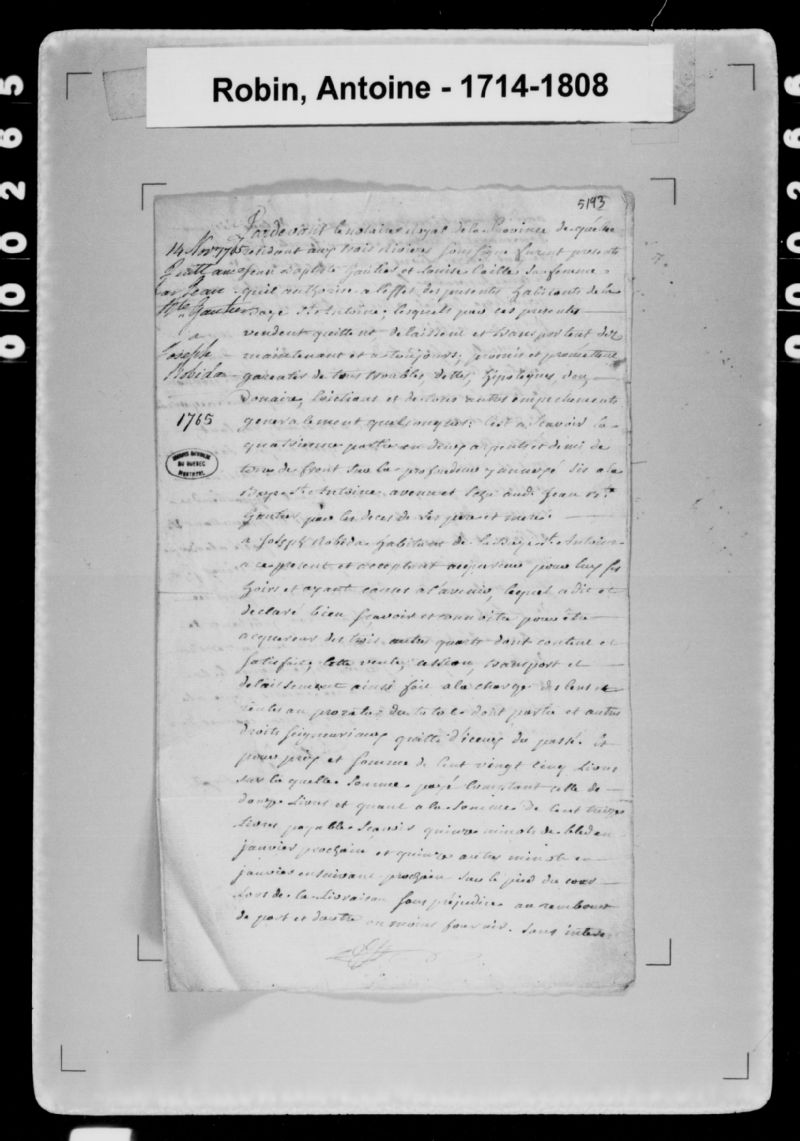 Robin, Antoine - 1714-1808
00265
5193
14 Nov 1765
Quittance
par Jean
Bte Gautier
a
Joseph
Robida
1765
ARCHIVES NATIONALES
DU QUEBEC
MONTREAL
Pardevant le notaire royal de la Province de quebec
residant aux trois Rivieres soussigné furent presents
Jean Baptiste Gautier et Louise sa femme
quil authorise a l'effet des presentes habitants de la
Baye St Antoine, lesquels par ces presentes
vendent quittent, delaissent et transportent des
maintenant et a toujours, promis et promettent
garantir de tous troubles, dettes, hipoteques, don
Douaire, et de tous autres empechements
generalement quelconques: c'est a scavoir la
quatrieme partie en deux arpents et demi de
terre de front sur la profondeur sis a la
Baye St Antoine avenu et audt Jean Bte
Gautier par les deces de ses pere et mere
a Joseph Robida habitant de la Baye St Antoine
a ce present et acceptant acquereur pour luy ses
hoirs et ayant cause a l'avenir, lequel a dit et
declaré bien scavoir et connoitre pour être
acquereur des trois autres quarts dont content et
satisfait, cette vente, cession, transport et
delaissement ainsi fait a la charge des cens et
rentes au prorata du total dont partie et autres
droits seigneuriaux quitte d'iceux du passé. Et
pour prix et somme de Cent vingt cinq livres
sur laquelle somme payé comptant celle de
douze livres et quant a la somme de Cent treize
livres payable scavoir quinze minots de bled en
janvier prochain et quinze autres minots en
janvier ensuivant prochain sur le pied du cour
lors de la livraison sans prejudice au
de part et dautre ou moins sans